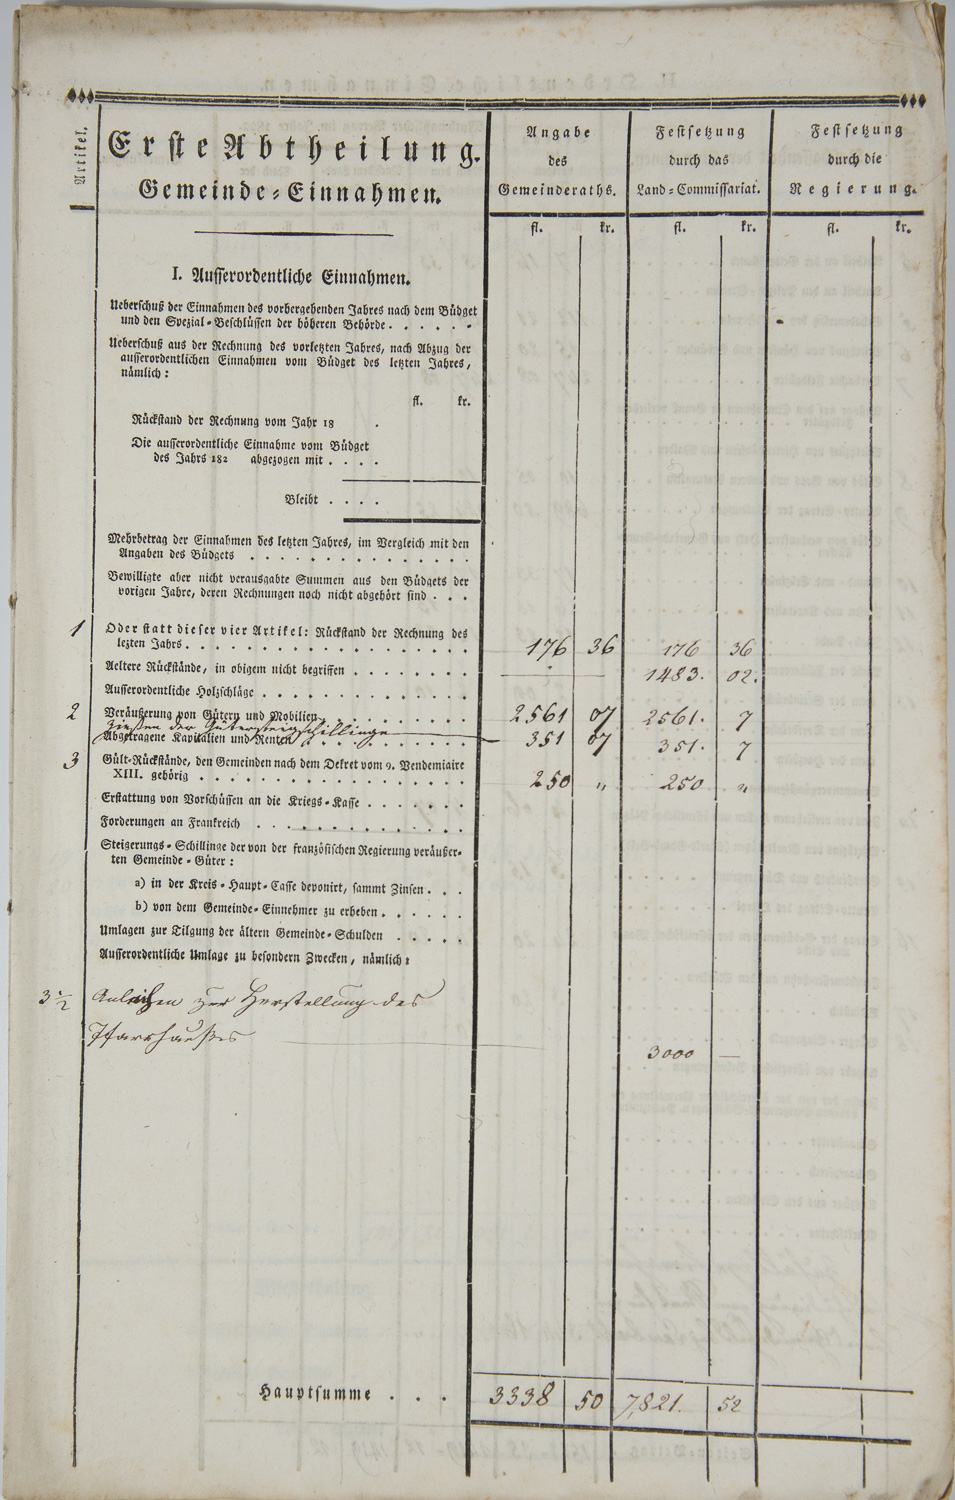 Artikel.
Erste Abtheilung.
Gemeinde-Einnahmen.
Angabe
des
Gemeinderaths.
Festsetzung
durch das
Land-Commissariat.
Festsetzung
durch die
Regierung.
fl. kr. fl. kr. fl. kr.
I. Ausserordentliche Einnahmen.
Ueberschuß der Einnahmen des vorhergehenden Jahres nach dem Büdget
und den Spezial-Beschlüssen der höheren Behörde . . . . . .
Ueberschuß aus der Rechnung des vorletzten Jahres, nach Abzug der
ausserordentlichen Einnahmen vom Büdget des letzten Jahres,
nämlich:
fl. kr.
Rückstand der Rechnung vom Jahr 18 .
Die ausserordentliche Einnahme vom Büdget
des Jahrs 182 abgezogen mit . . . .
Bleibt . . . .
Mehrbetrag der Einnahmen des letzten Jahres, im Vergleich mit den
Angaben des Büdgets . . . . . . . . . . . . . . .
Bewilligte aber nicht verausgabte Summen aus den Büdgets der
vorigen Jahre, deren Rechnungen noch nicht abgehört sind . . .
1 Oder statt dieser vier Artikel: Rückstand der Rechnung des
letzten Jahrs . . . . . . . . . . . . . . . . . . 176 36 176 36
Aeltere Rückstände, in obigem nicht begriffen . . . . . . . . 1483. 02.
Ausserordentliche Holzschläge . . . . . . . . . . . . . .
2 Veräußerung von Gütern und Mobilien . . . . . . . . . . 2561 07 2561. 7
Zinsen der Gütersteigschillinge
Abgetragene Kapitalien und Renten . . . . . . . . . . . 351 07 351. 7
3 Gült-Rückstände, den Gemeinden nach dem Dekret vom 9. Vendemiaire
XIII. gehörig . . . . . . . . . . . . . . . . . . 250 „ 250 „
Erstattung von Vorschüssen an die Kriegs-Kasse . . . . . . .
Forderungen an Frankreich . . . . . . . . . . . . . . .
Steigerungs-Schillinge der von der französischen Regierung veräußer-
ten Gemeinde-Güter:
a) in der Kreis-Haupt-Casse deponirt, sammt Zinsen . . .
b) von dem Gemeinde-Einnehmer zu erheben . . . . . .
Umlagen zur Tilgung der ältern Gemeinde-Schulden . . . . .
Ausserordentliche Umlage zu besondern Zwecken, nämlich:
3 1/2 Anleihen zur Herstellung des
Pfarrhauses 3000 —
Hauptsumme . . . 3338 50 7,821. 52